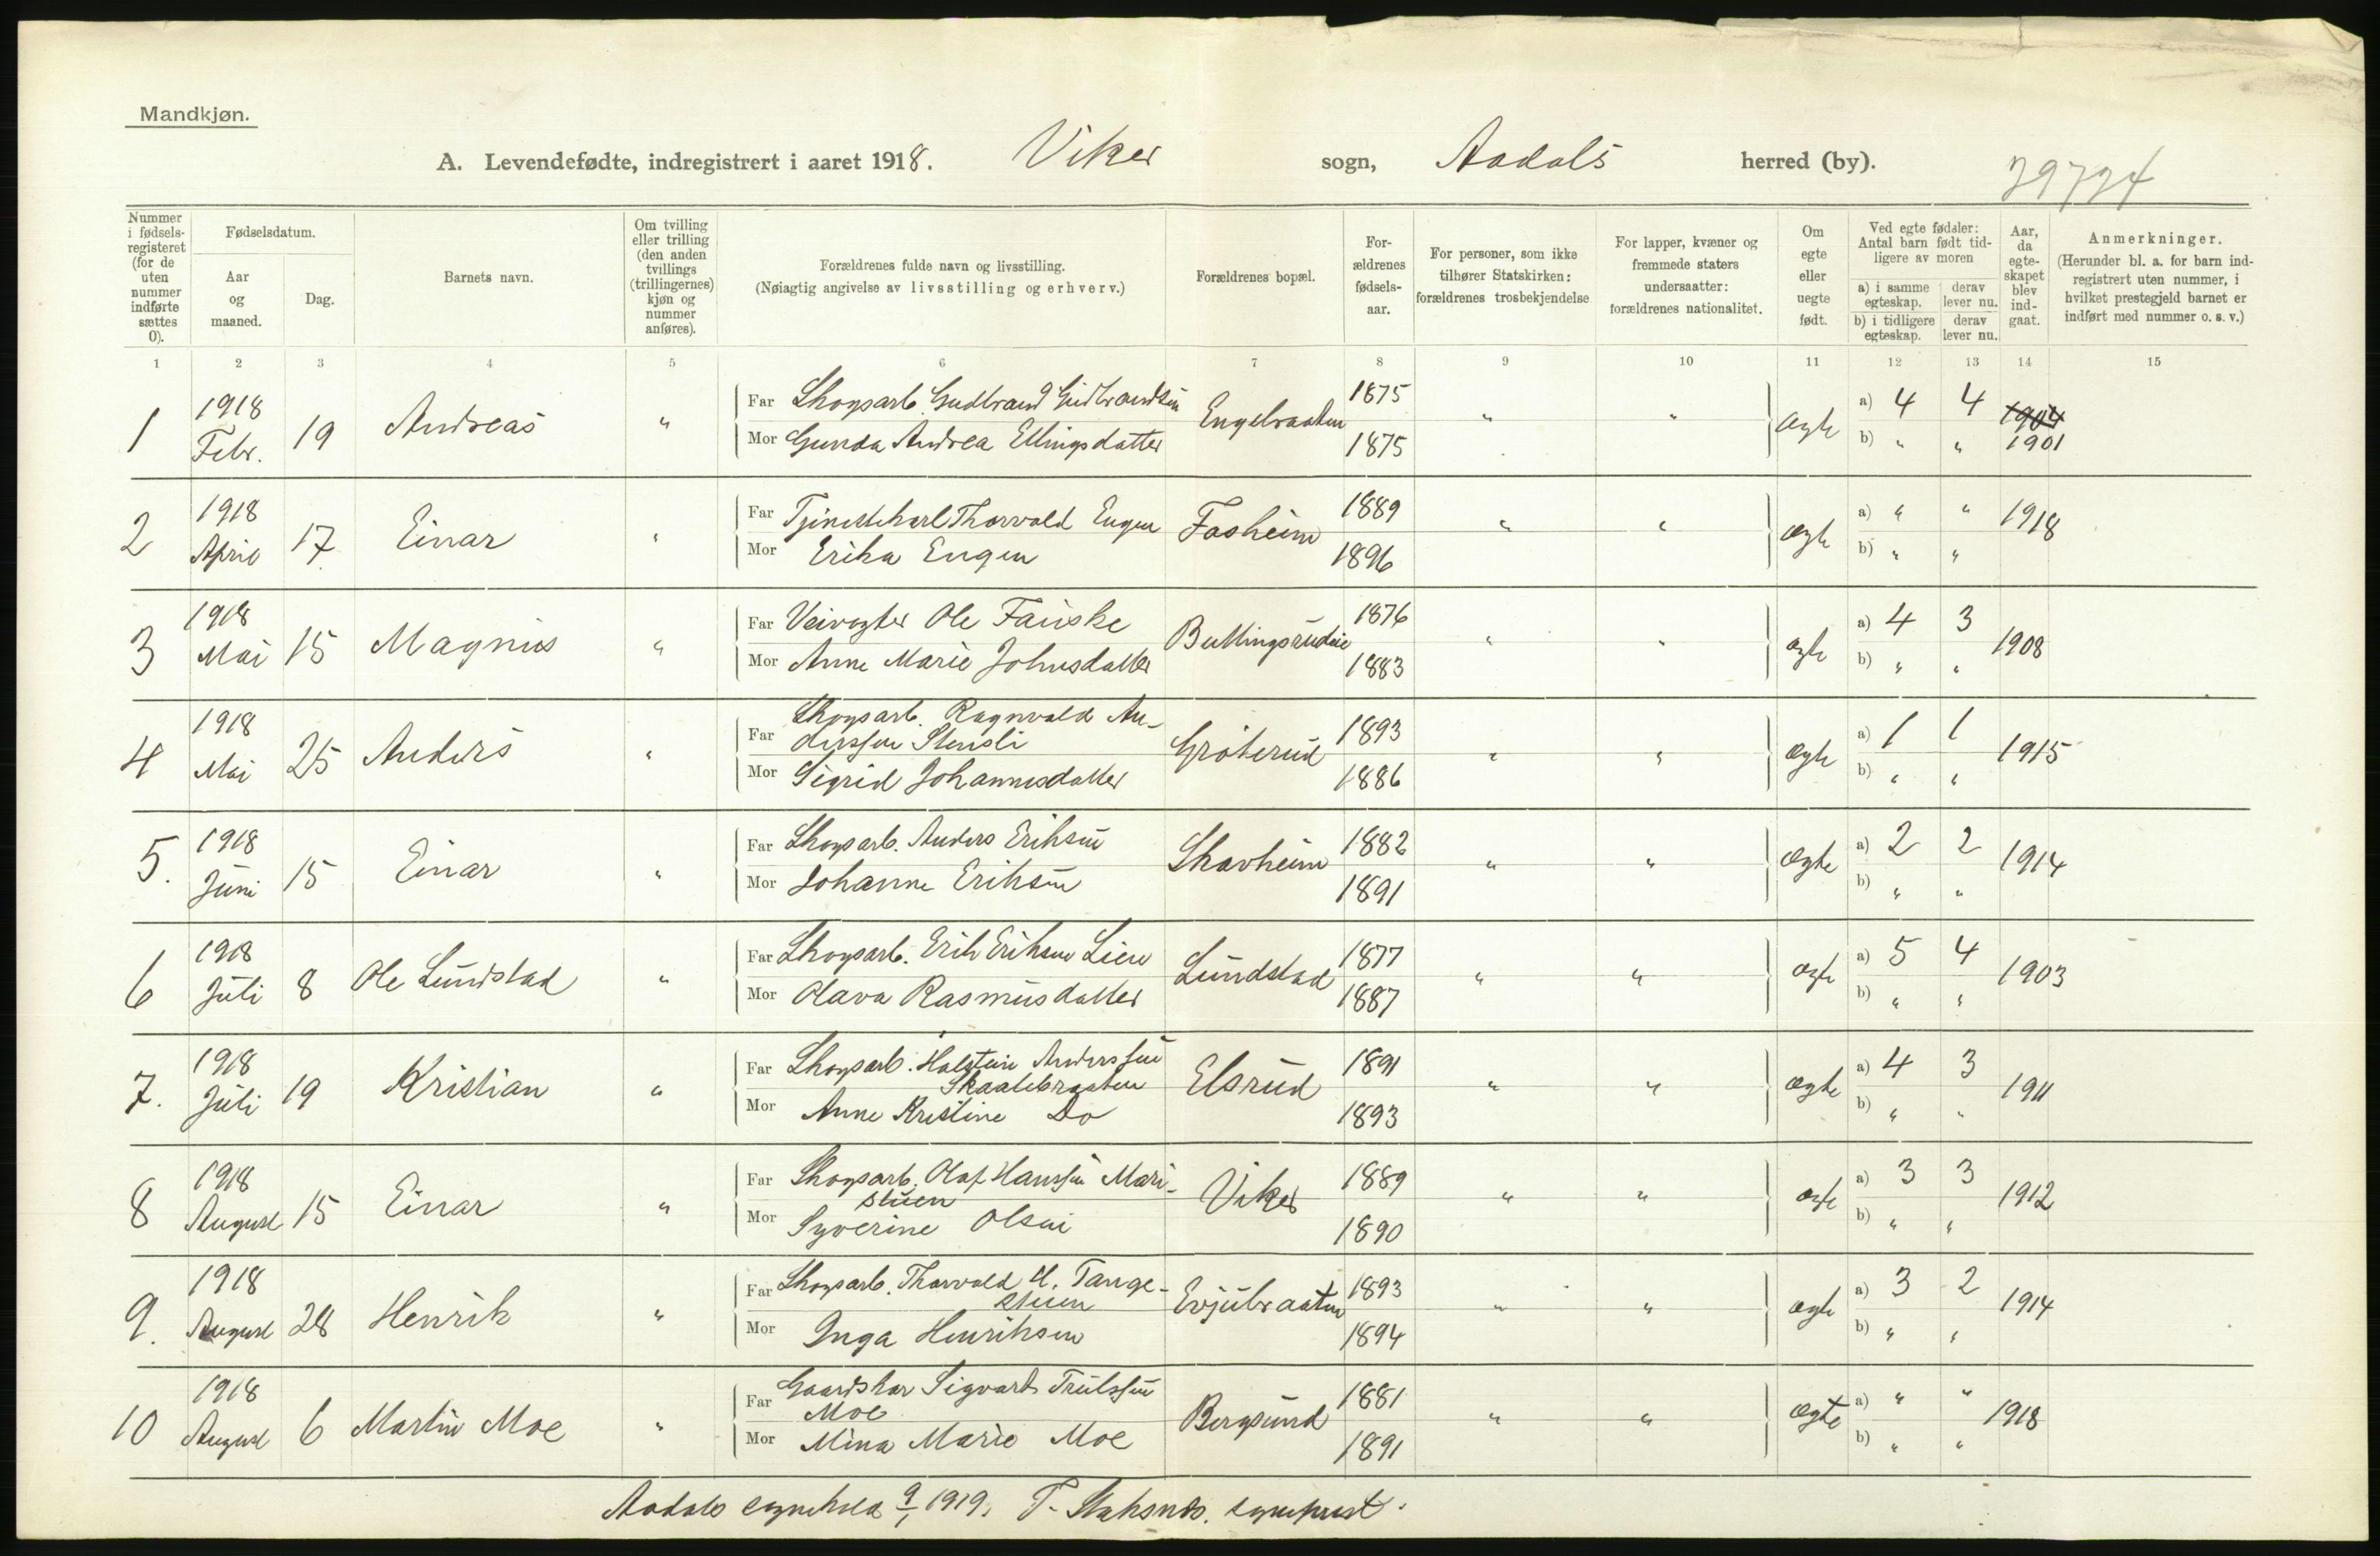 Mandkjøn.
A. Levendefødte, indregistrert i aaret 1918. Viker sogn, Aadals herred (by).
Nummer i fødsels-registeret (for de uten nummer indførte sættes 0).
Fødselsdatum.
Aar og maaned.
Dag.
Barnets navn.
Om tvilling eller trilling (den anden tvillings (trillingernes) kjøn og nummer anføres).
Forældrenes fulde navn og livsstilling.
(Nøiagtig angivelse av livsstilling og erhverv.)
Forældrenes bopæl.
For-ældrenes fødsels-aar.
For personer, som ikke tilhører Statskirken: forældrenes trosbekjendelse
For lapper, kvæner og fremmede staters undersaatter: forældrenes nationalitet.
Om egte eller uegte født.
Ved egte fødsler: Antal barn født tid-ligere av moren
a) i samme egteskap. derav lever nu.
b) i tidligere egteskap. derav lever nu.
Aar, da egte-skapet blev ind-gaat.
Anmerkninger.
(Herunder bl. a. for barn ind-registrert uten nummer, i hvilket prestegjeld barnet er indført med nummer o. s. v.)
1 2 3 4 5 6 7 8 9 10 11 12 13 14 15
1 1918 Febr. 19 Andreas " Far Skogsarb. Gudbrand Gudbrandsen Engebraaten 1875 " " ægte a) 4 4 1904
Mor Gunda Andrea Ellingsdatter 1875 b) " " 1901
2 1918 April 17 Einar " Far Tjenestekarl Thorvald Engen Fosheim 1889 " " ægte a) " " 1918
Mor Erika Engen 1896 b) " "
3 1918 Mai 15 Magnus " Far Veivogter Ole Fauske Buttingsrudeie 1876 " " ægte a) 4 3 1908
Mor Anne Marie Johnsdatter 1883 b) " "
4 1918 Mai 25 Anders " Far Skogsarb. Ragnvald An-
derssen Stensli Gröterud 1893 " " ægte a) 1 1 1915
Mor Sigrid Johannesdatter 1886 b) " "
5. 1918 Juni 15 Einar " Far Skogsarb. Anders Eriksen Skavheim 1882 " " ægte a) 2 2 1914
Mor Johanne Eriksen 1891 b) " "
6 1918 Juli 8 Ole Lundstad " Far Skogsarb. Erik Eriksen Lien Lundstad 1877 " " ægte a) 5 4 1903
Mor Olava Rasmusdatter 1887 b) " "
7. 1918 Juli 19 Kristian " Far Skogsarb. Halstein Anderssen
Skaalebraaten Elsrud 1891 " " ægte a) 4 3 1911
Mor Anne Kristine Do 1893 b) " "
8 1918 August 15 Einar " Far Skogsarb. Olaf Hanssen Mari-
stuen Viker 1889 " " ægte a) 3 3 1912
Mor Syverine Olsen 1890 b) " "
9. 1918 August 28 Henrik " Far Skogsarb. Thorvald H. Tange-
stuen Evjubraaten 1893 " " ægte a) 3 2 1914
Mor Inga Henriksen 1894 b) " "
10 1918 August 6 Martin Moe " Far Gaardskar Sigvart Trulssen
Moe Bergsund 1881 " " ægte a) " " 1918
Mor Mina Marie Moe 1891 b) " "
Aadals sognekald 9/1 1919. sogneprest.